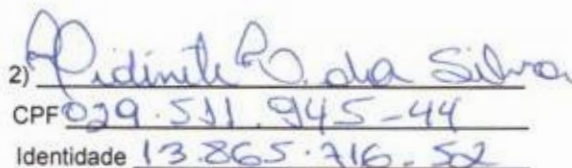 2) Aidinile O. da Silva
CPF 029.511.945-44
Identidade 13.865.716-52